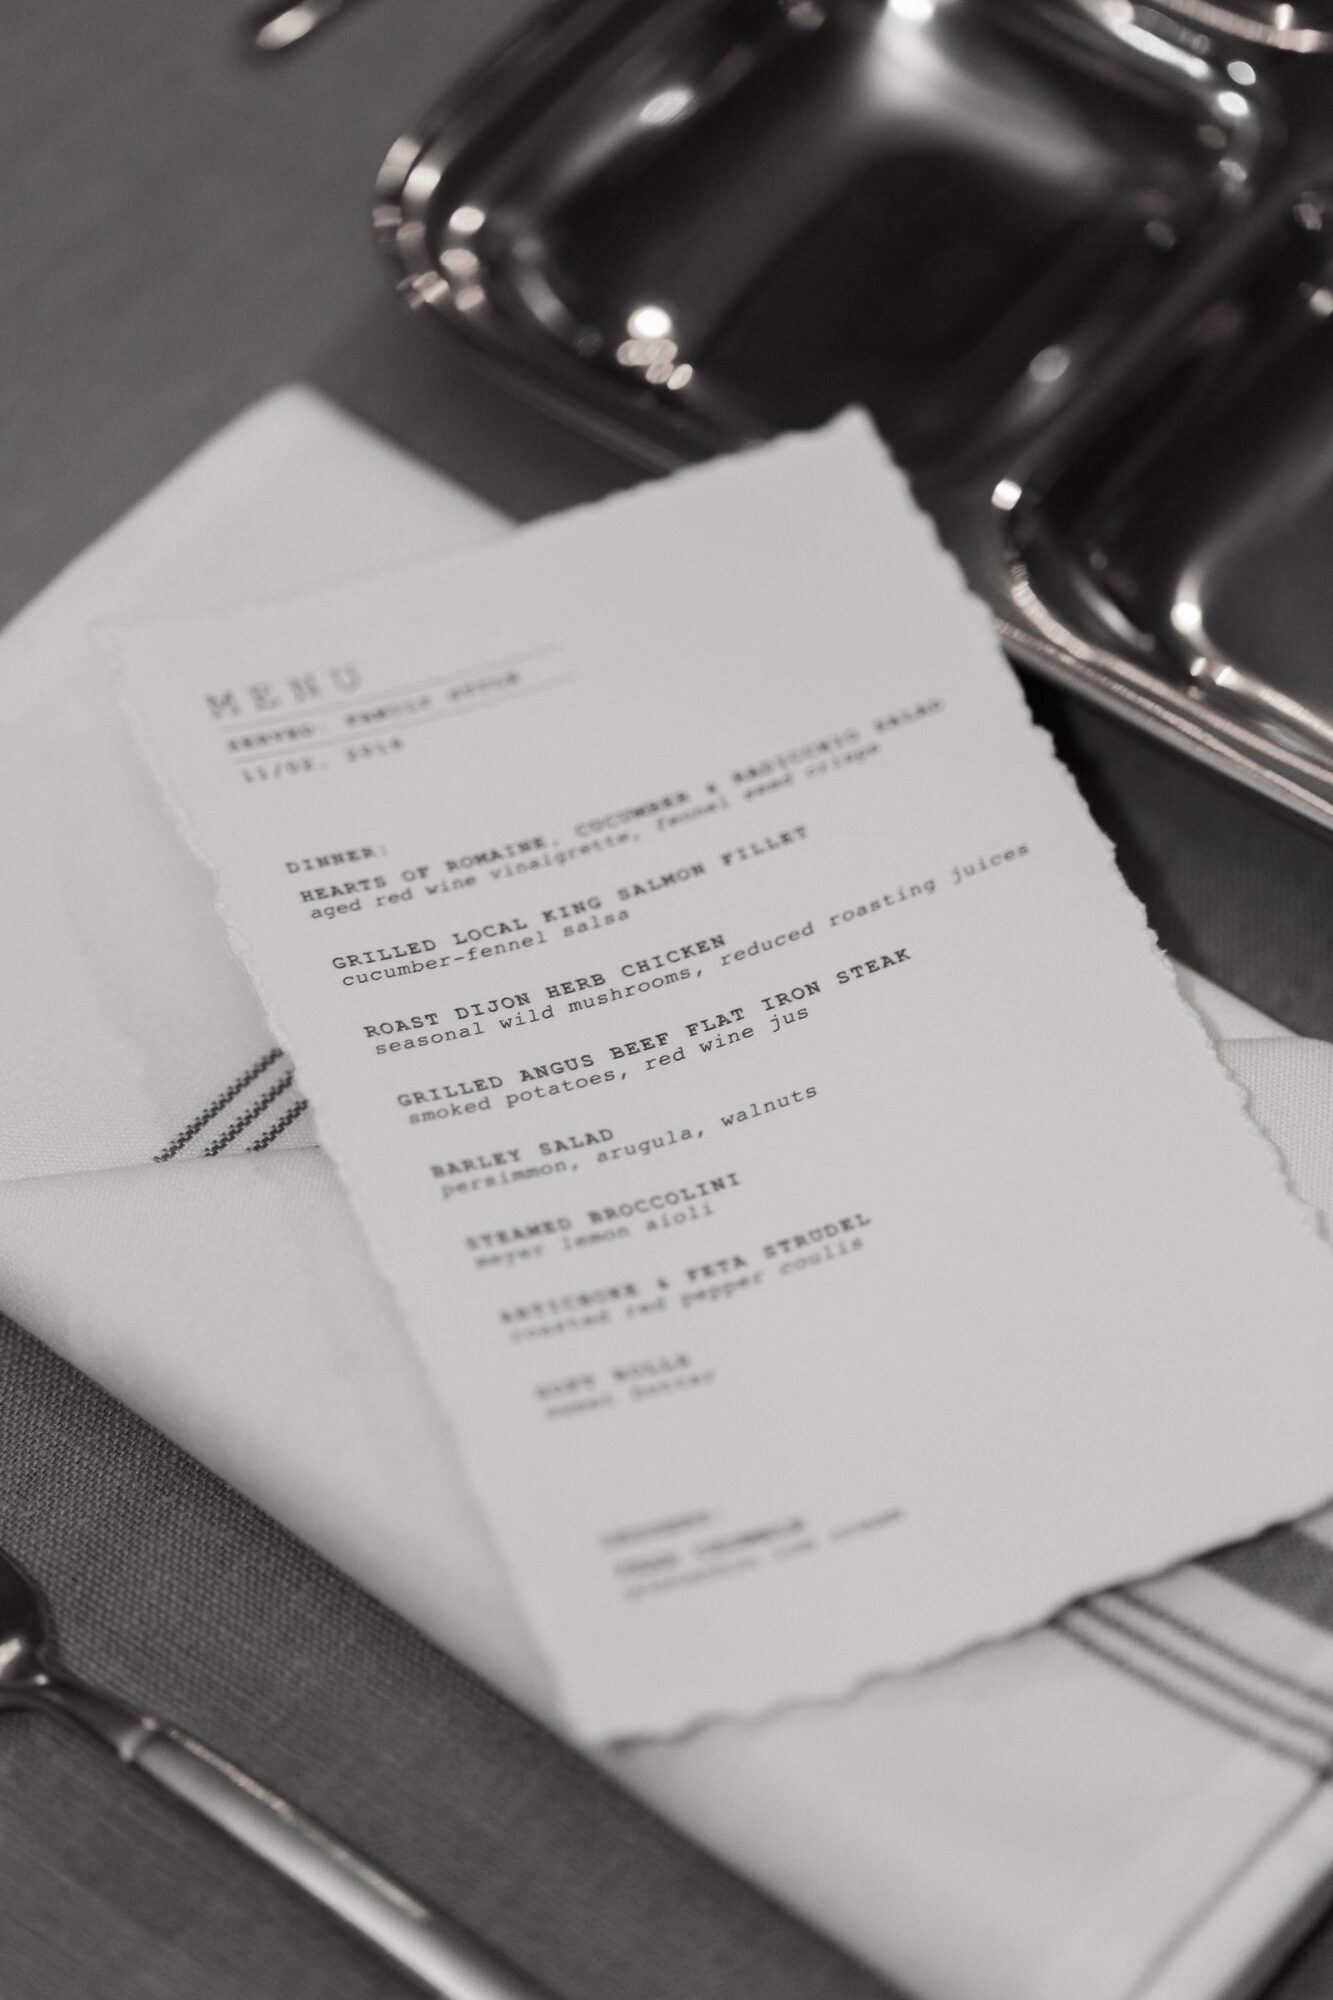 MENU
SERVED: FAMILY STYLE
11/02, 2018
DINNER:
HEARTS OF ROMAINE, CUCUMBER & RADICCHIO SALAD
aged red wine vinaigrette, fennel seed crisps
GRILLED LOCAL KING SALMON FILLET
cucumber-fennel salsa
ROAST DIJON HERB CHICKEN
seasonal wild mushrooms, reduced roasting juices
GRILLED ANGUS BEEF FLAT IRON STEAK
smoked potatoes, red wine jus
BARLEY SALAD
persimmon, arugula, walnuts
STEAMED BROCCOLINI
meyer lemon aioli
ARTICHOKE & FETA STRUDEL
roasted red pepper coulis
SOFT ROLLS
sweet butter